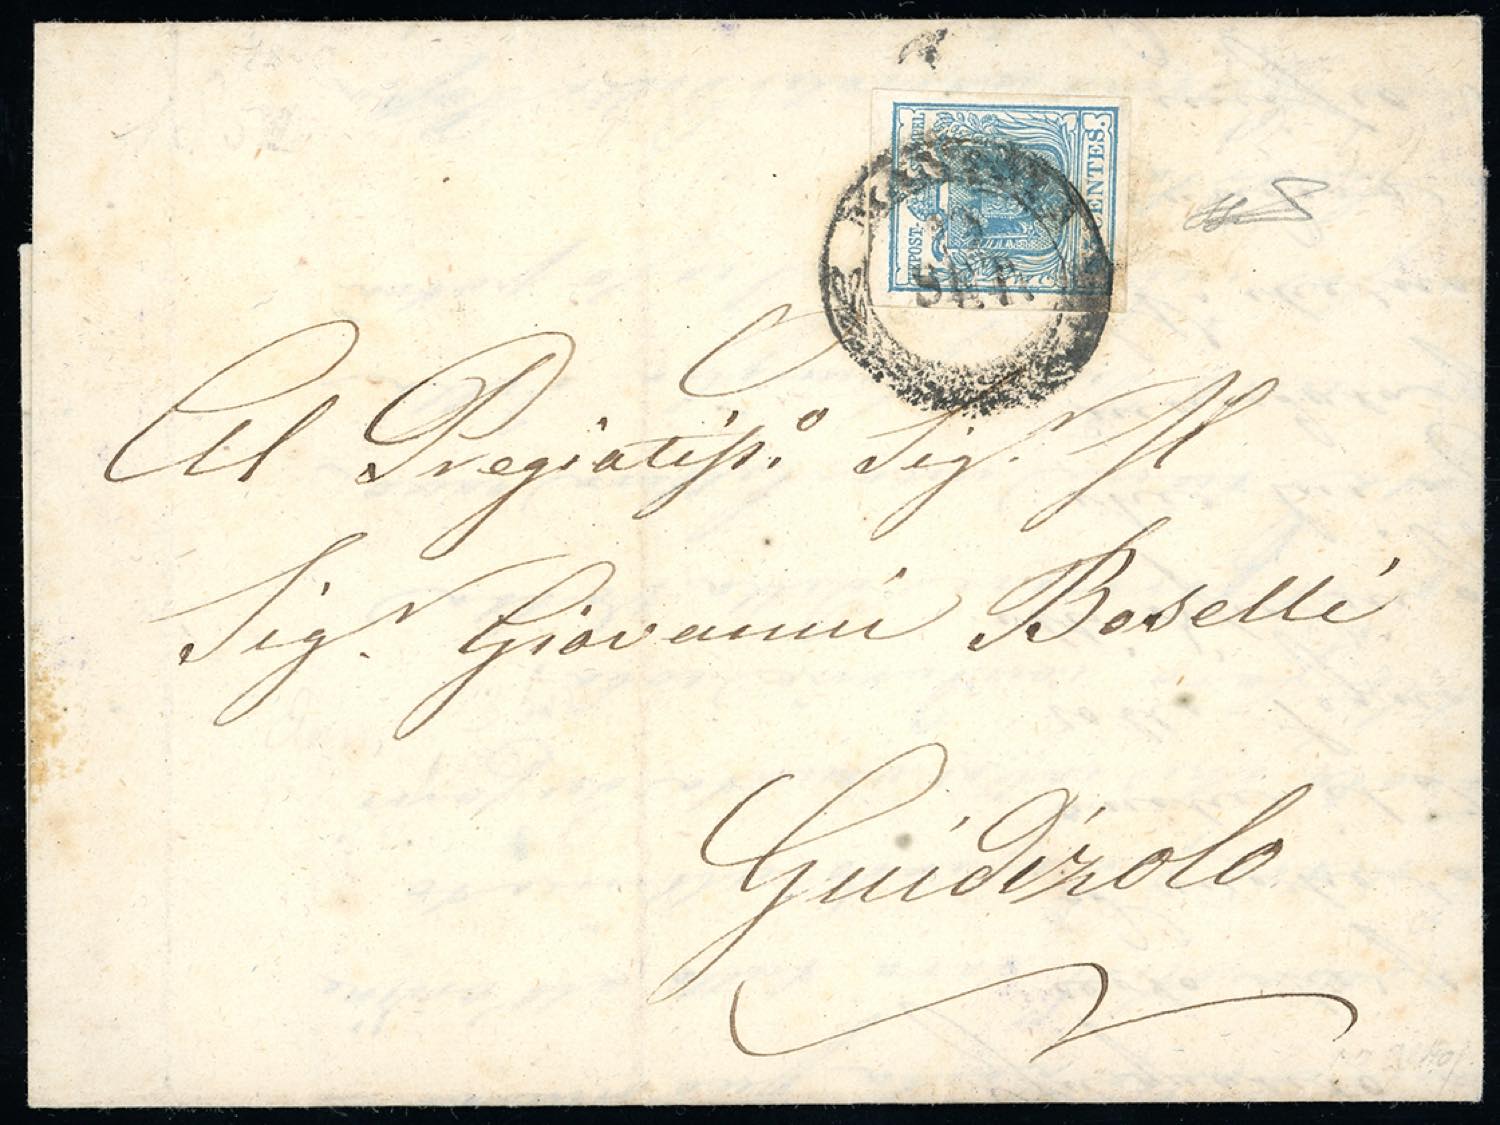 KKPOST-STEMPEL
CENTES.
MANTOVA
SET.
Al Pregiatiss.o Sig.r
Sig.r Giovanni Boselli
Guidizolo